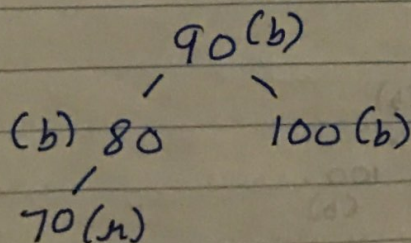 90(b)
(b) 80 100(b)
70(r)